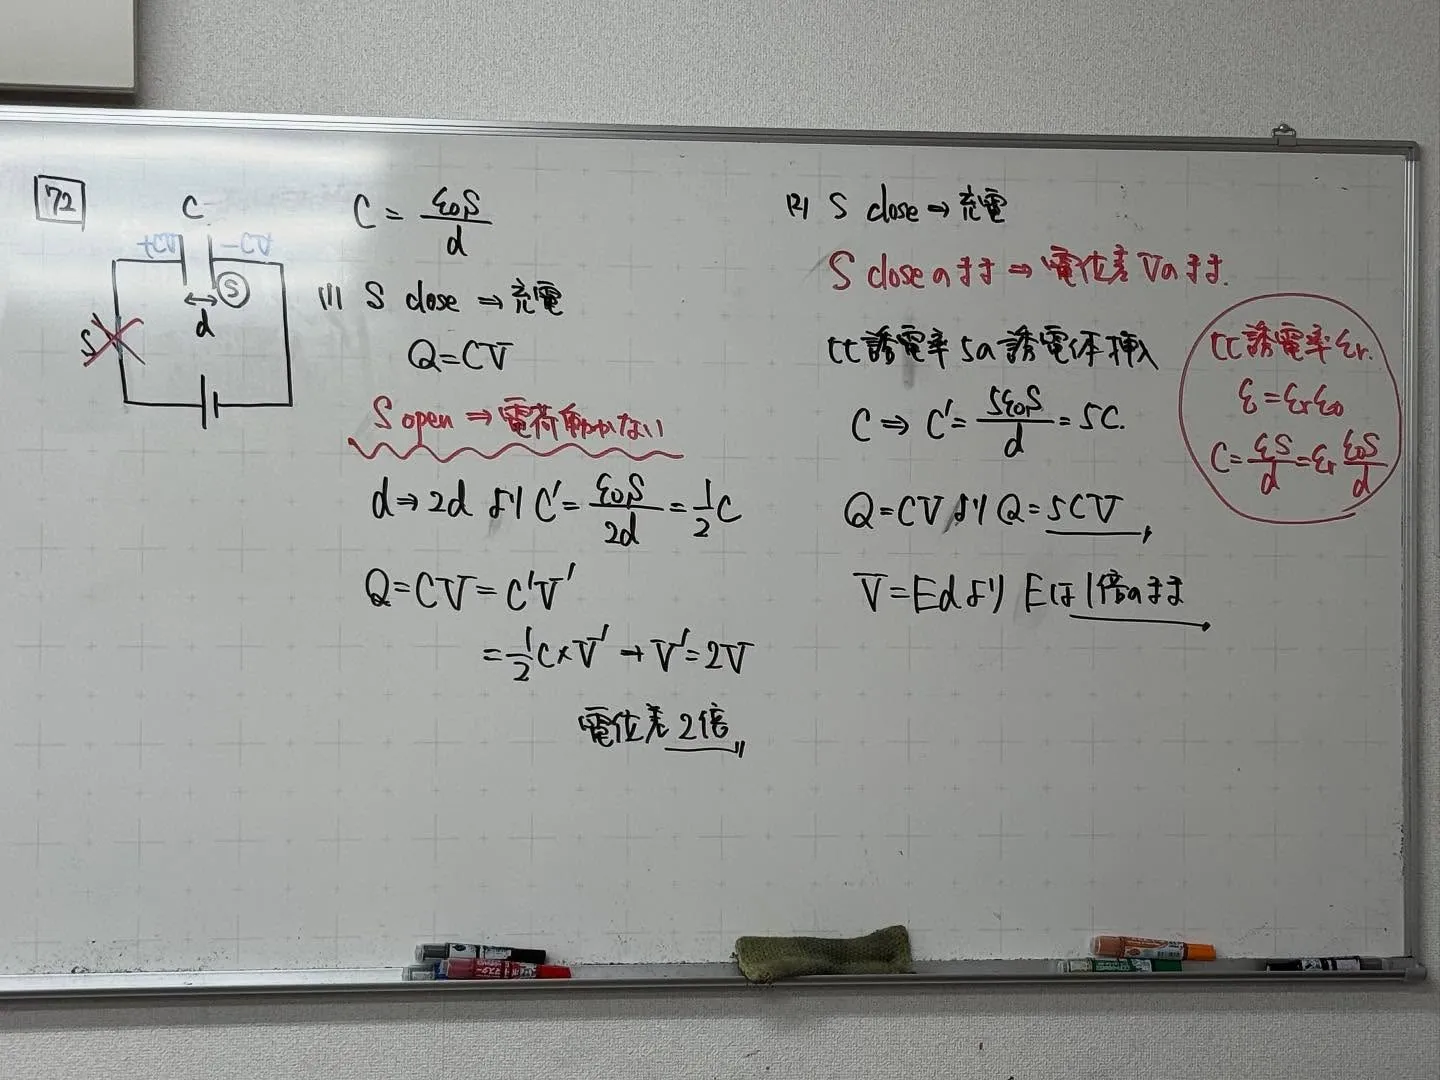 72
C
+CV
-CV
S
d
S
C = ε₀S/d
(1) S close ⇒ 充電
Q=CV
S open ⇒ 電荷動かない
d⇒2d より C'= ε₀S/2d = 1/2 C
Q=CV=C'V'
= 1/2 C×V' → V'=2V
電位差 2倍
(2) S close ⇒ 充電
S closeのまま ⇒ 電位差Vのまま.
比誘電率5の誘電体挿入
C ⇒ C'= 5ε₀S/d = 5C.
Q=CVより Q=5CV
V=Edより Eは1倍のまま
比誘電率εr.
ε=εrε₀
C= εS/d = εr ε₀S/d